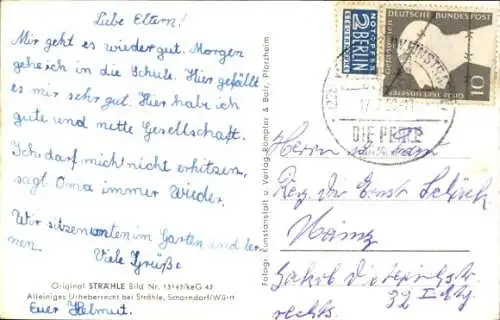 Liebe Eltern!
Mir geht es wieder gut. Morgen
gehe ich in die Schule. Hier gefällt
es mir sehr gut. Hier habe ich
gute und nette Gesellschaft.
Ich darf mich nicht erhitzen,
sagt Oma immer wieder.
Wir sitzen unten im Garten und ler
nen. Viele Grüße
Original STRÄHLE Bild Nr. 13143/keG 42
Alleiniges Urheberrecht bei Strähle, Schorndorf/Württ.
Euer Helmut.
Fotogr. Kunstanstalt u. Verlag Römpler & Bolz, Pforzheim
NOTOPFER
2 BERLIN
STEUERMARKE
DEUTSCHE BUNDESPOST
10
DIE PERLE
Herrn
Reg. Dir. Ernst
Mainz
Jakob Dieterichstr.
32 I Etg.
rechts.